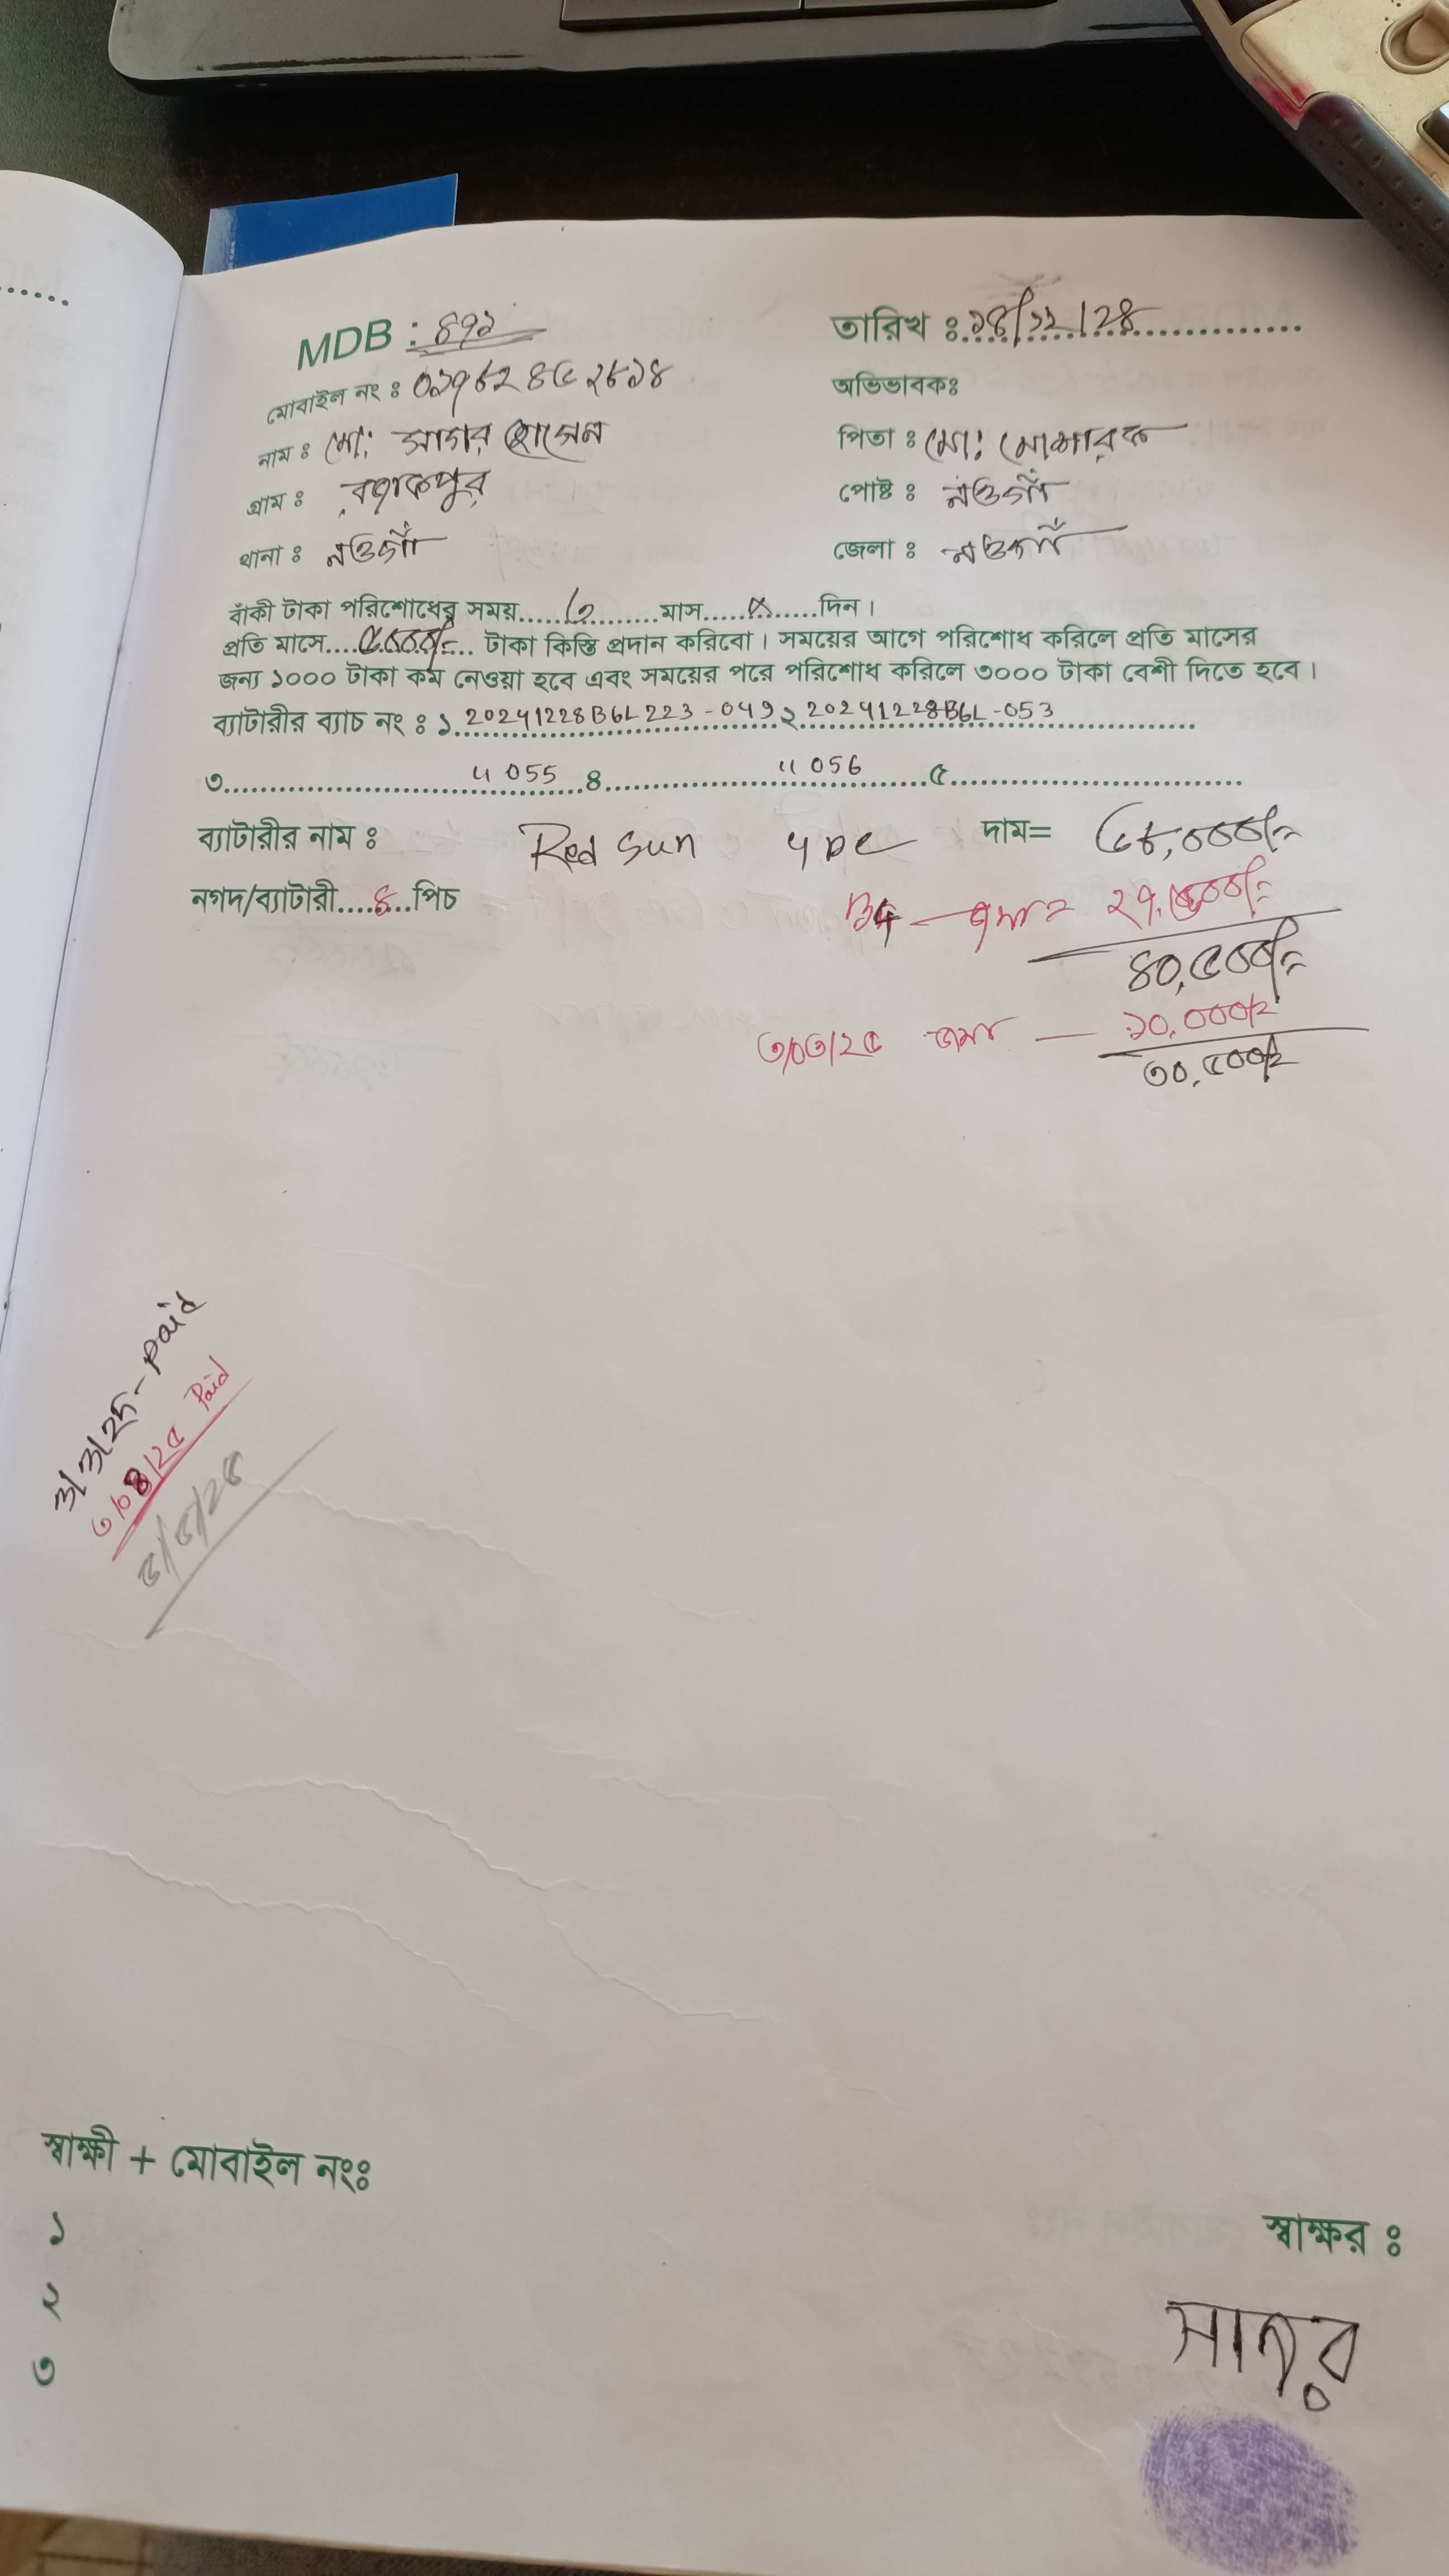 MDB : ৪৭১
তারিখ ঃ ১৪/১২/২৪
মোবাইল নং ঃ ০১৭৮২৪৫২৮১৪
অভিভাবকঃ
নাম ঃ মো: সাগর হোসেন
পিতা ঃ মো: মোবারক
গ্রাম ঃ
পোষ্ট ঃ নওগাঁ
থানা ঃ নওগাঁ
জেলা ঃ নওগাঁ
বাঁকী টাকা পরিশোধের সময়......৬......মাস......দিন।
প্রতি মাসে....৫০০০/=... টাকা কিস্তি প্রদান করিবো। সময়ের আগে পরিশোধ করিলে প্রতি মাসের
জন্য ১০০০ টাকা কম নেওয়া হবে এবং সময়ের পরে পরিশোধ করিলে ৩০০০ টাকা বেশী দিতে হবে।
ব্যাটারীর ব্যাচ নং ঃ ১ 20241228B6L223-049 ২ 20241228B6L-053
৩ " 055 ৪ " 056 ৫
ব্যাটারীর নাম ঃ Red Sun 4pc দাম= ৬৮,০০০/=
নগদ/ব্যাটারী....৪...পিচ
জমা = ২৭,৫০০/=
৪০,৫০০/=
৩/০৩/২৫ জমা — ১০,০০০/=
৩০,৫০০/=
3/3/25 - paid
৩/০৪/২৫ Paid
স্বাক্ষী + মোবাইল নংঃ
১
২
৩
স্বাক্ষর ঃ
সাগর